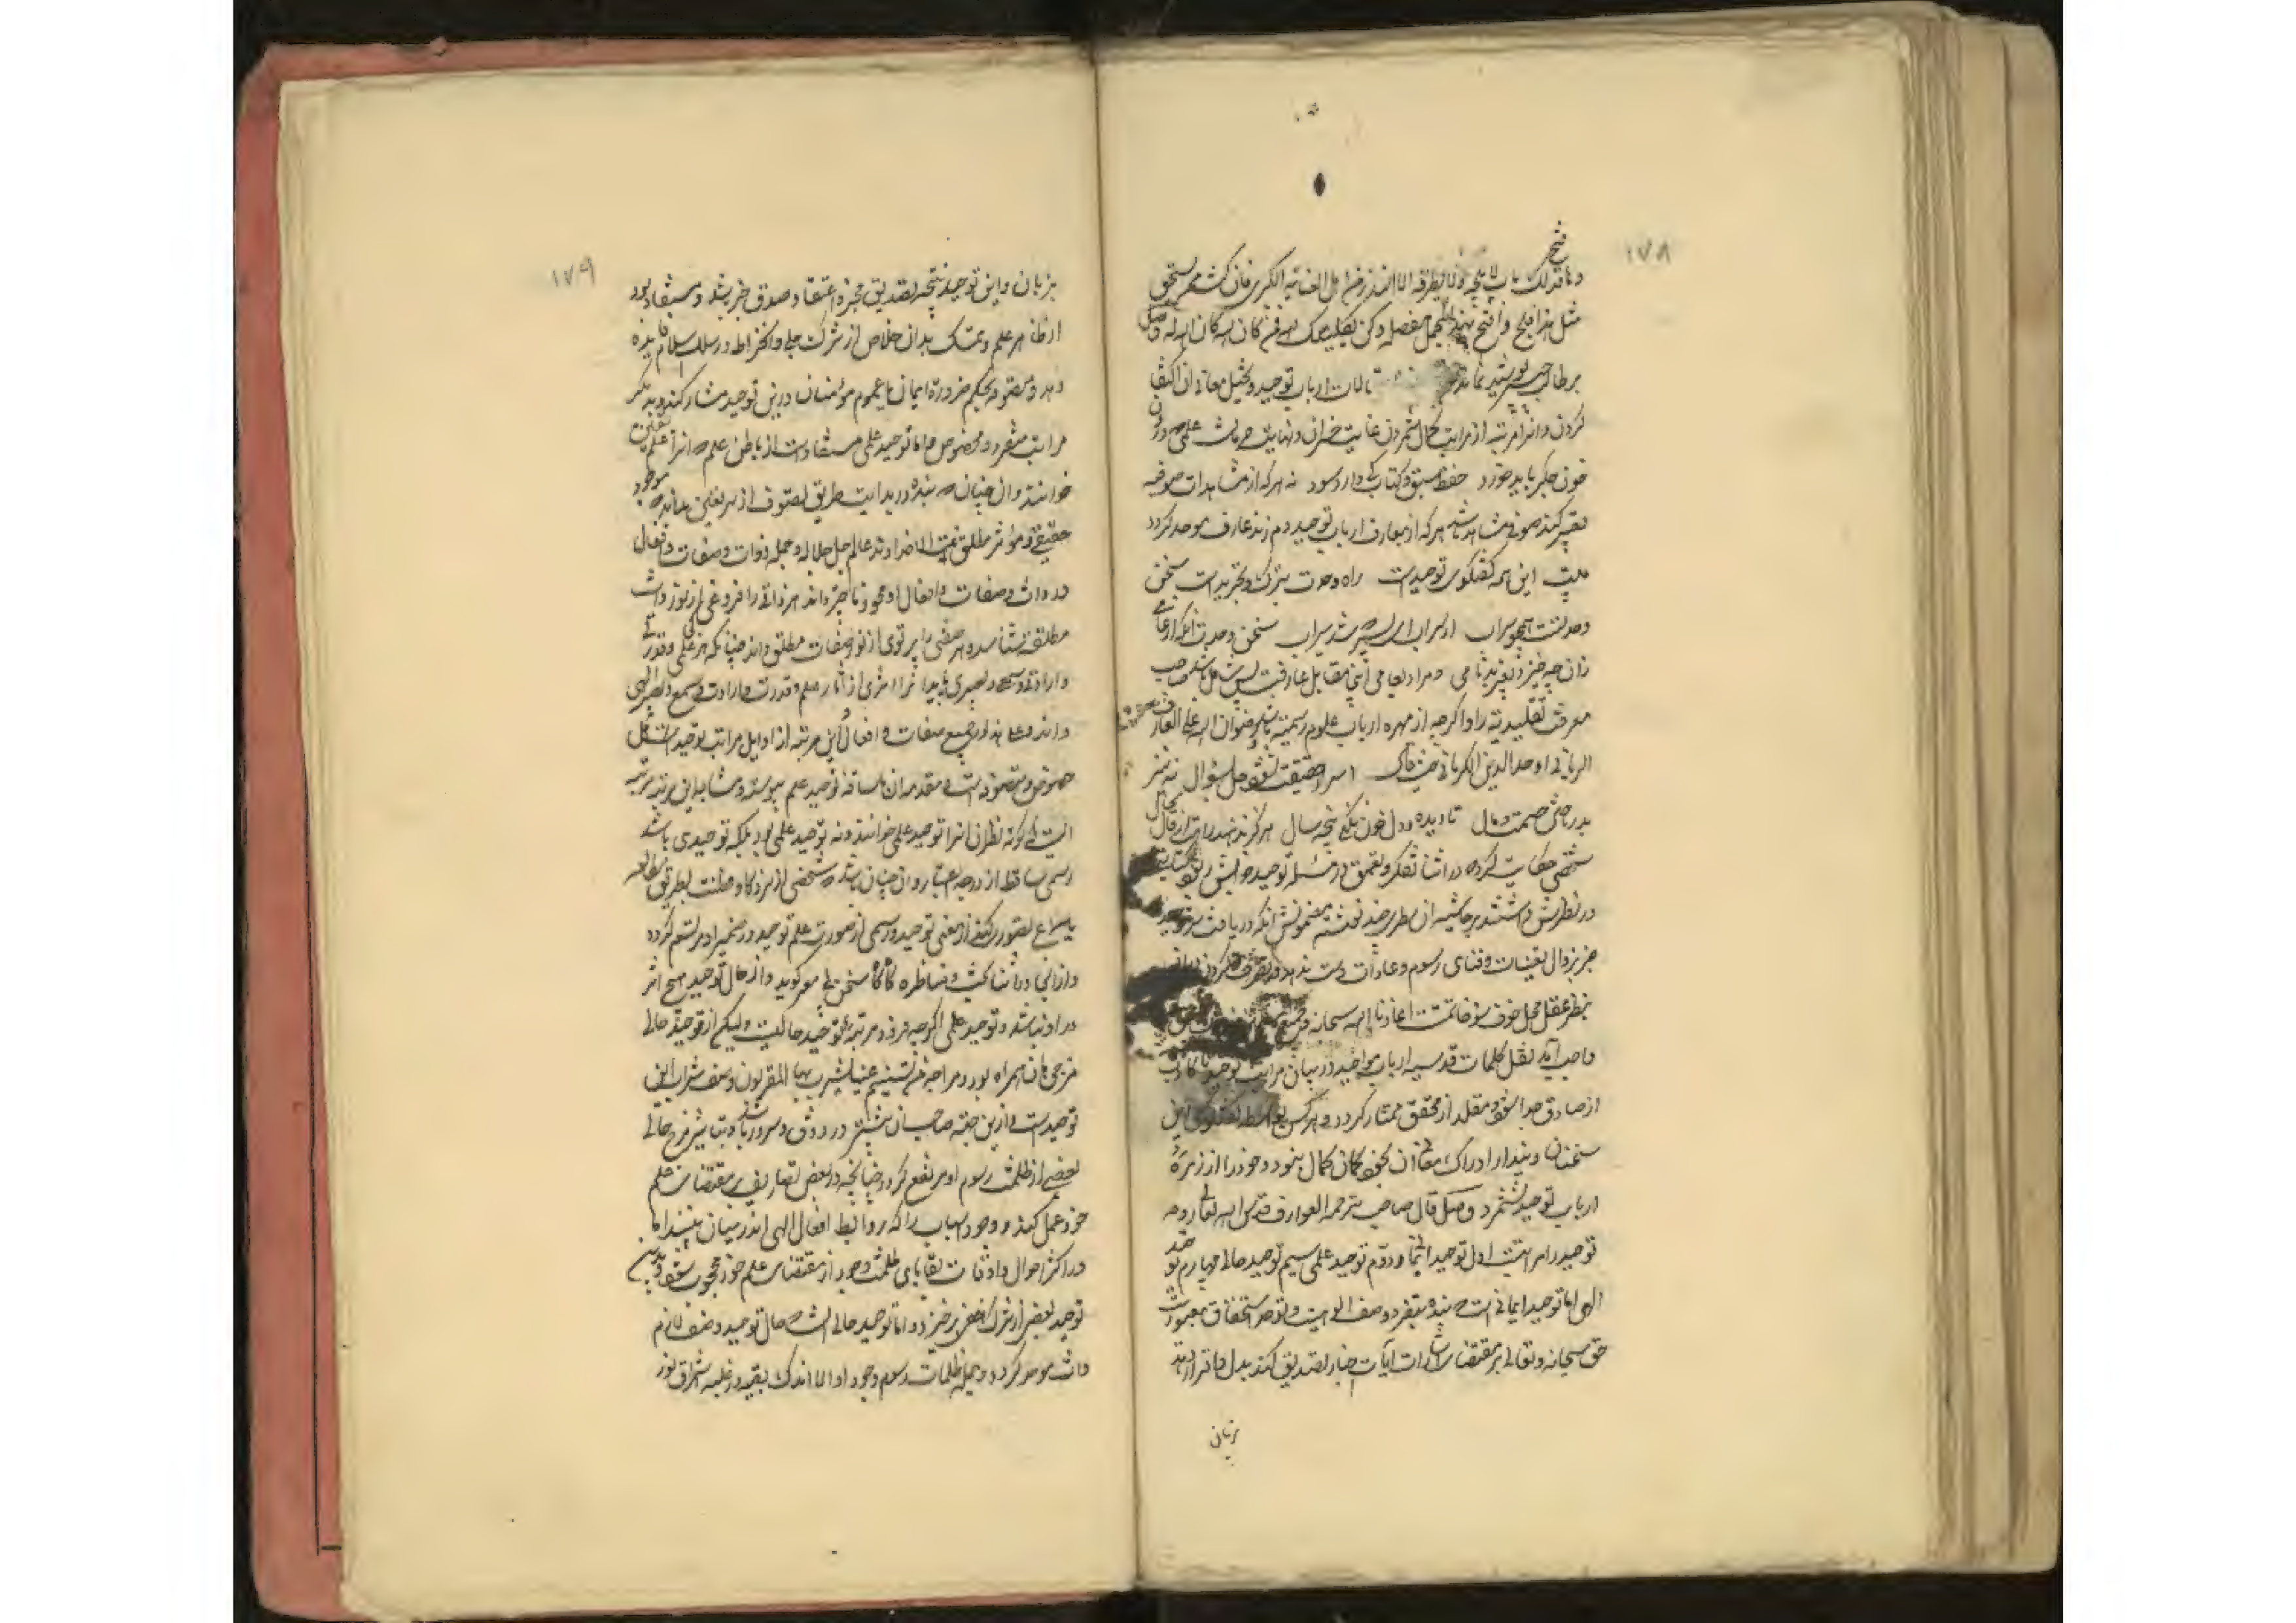 ١٧٨
مثل هذا فلج وافتح بهذا المجمل مفصله وكن بكليتك لله فمن كان لله كان الله له وصل
بر طالب پوشیده نماند مقالات ارباب توحید و تخیل معانی آن اکتفا
کردن و آنرا مرتبه از مراتب کمال شمردن غایت خسران و نهایت حرمانست علمی
خون جگر باید خورد حفظ سبق و کتاب کی دارد سود نه هر که از مشاهدات صوفیه
تعبیر کند صوفی مشاهد باشد هر که از معارف ارباب توحید دم زند عارف موحد گردد
این همه گفتگوی توحیدست راه وحدت بترک و تجرید است سخن
وحدتست همچو سراب از سراب ای پسر که شد سیراب سخن وحدت آنکه از عامی
زان چه خیزد بغیر بدنامی و مراد بعامی اینجا مقابل عارفست پس شامل باشد صاحب
معرفت تقلیدیه را و اگر چه از مهره ارباب علوم رسمیه باشد رضوان الله علی العارف
الربانی اوحد الدین الکرمانی حیث قال اسرار حقیقت نشود حل بسؤال نه نیز
بدر باختن حشمت و مال تا دیده و دل خون نکنی پنجه سال هرگز ندهند راهت از قال بحال
شخصی حکایت کرد که در اثناء تفکر و تعمق در مسئله توحید خوابش ربود کتابی
در نظرش داشتند بر حاشیه آن سطری چند نوشته مضمونش آنکه دریافت سر توحید
جز بزوال تعینات و فنای رسوم و عادات دست ندهد و تصرف کردن در آن
بنظر عقل محل خوف سوء خاتمت است اعاذنا الله سبحانه وجمیع
واجب آمد نقل کلمات قدسیه ارباب مواجید در بیان مراتب توحید تا کاذب
از صادق جدا شود و مقلد از محقق ممتاز گردد و هر کس بواسطه گفتگوی این
سخنان و پندار ادراک معانی آن بخود گمان کمال نبرد و خود را از زمره
ارباب توحید نشمرد وصل قال صاحب ترجمه العوارف قدس الله تعالی روحه
توحید را مراتبست اول توحید ایمانی و دوم توحید علمی سیم توحید حالی چهارم توحید
الهی اما توحید ایمانی آنست که بنده بتفرد وصف الهیت و توحد استحقاق معبودیت
حق سبحانه و تعالی بر مقتضای اشارات آیات و اخبار تصدیق کند بدل و اقرار دهد
بزبان
١٧٩
بزبان و این توحید نتیجه تصدیق مخبر و اعتقاد صدق خبر باشد و مستفاد بود
از ظاهر علم و تمسک بدان خلاص از شرک جلی و انخراط در سلک اسلام فایده
دهد و متصوفه بحکم ضروره ایمان با عموم مؤمنان درین توحید مشارکند و بدیگر
مراتب متفرد و مخصوص اما توحید علمی مستفادست از باطن علم که آنرا علم یقین
خوانند و آن چنان بود که بنده در بدایت طریق تصوف از سر یقین بداند که موجود
حقیقی و مؤثر مطلق نیست الا خداوند عالم جل جلاله و جمله ذوات و صفات و افعال
در ذات و صفات و افعال او محو و ناچیز داند هر ذاتی را فروغی از نور ذات
مطلق شناسد و هر صفتی را پرتوی از نور صفات مطلق داند چنانکه هر علمی و قدرتی
و ارادتی و سمعی و بصری یابد آنرا اثری از آثار علم و قدرت و ارادت و سمع و بصر الهی
داند و علی هذا در جمیع صفات و افعال و این مرتبه از اوایل مراتب توحید اهل
خصوص و متصوفه است و مقدمه آن با ساقه توحید عام پیوسته و مشابه این مرتبه مرتبه
ایست که کوته نظران آنرا توحید علمی خوانند و نه توحید علمی بود بلکه توحیدی باشد
رسمی ساقط از درجه اعتبار و آن چنان باشد که شخصی از سر ذکا و فطنت بطریق مطالعه
یا سماع تصوری کند از معنی توحید و رسمی از صورت علم توحید در ضمیر او مرتسم گردد
و از آنجا در اثناء بحث و مناظره گاه گاه سخنی بی مغز گوید و از حال توحید هیچ اثر
در او نباشد و توحید علمی اگر چه فرود مرتبه توحید حالیست ولیکن از توحید حالی
مزجی با آن همراه بود و مزاجه من تسنیم عینا یشرب بها المقربون وصف شراب این
توحیدست و ازین جهت صاحب آن بیشتر در ذوق و سرور باشد چه بتاثیر مزج حالی
بعضی از ظلمت رسوم او مرتفع گردد چنانچه در بعض تصاریف بر مقتضای علم
خود عمل کند و وجود اسباب را که روابط افعال الهی اند در میان نبیند اما
در اکثر احوال و اوقات بقایای ظلمت وجود از مقتضای علم خود محجوب شود و بدین
توحید بعضی از شرک خفی برخیزد و اما توحید حالی آنست که حال توحید وصف لازم
ذات موحد گردد و جمله ظلمات رسوم وجود او الا اندک بقیه در غلبه اشراق نور